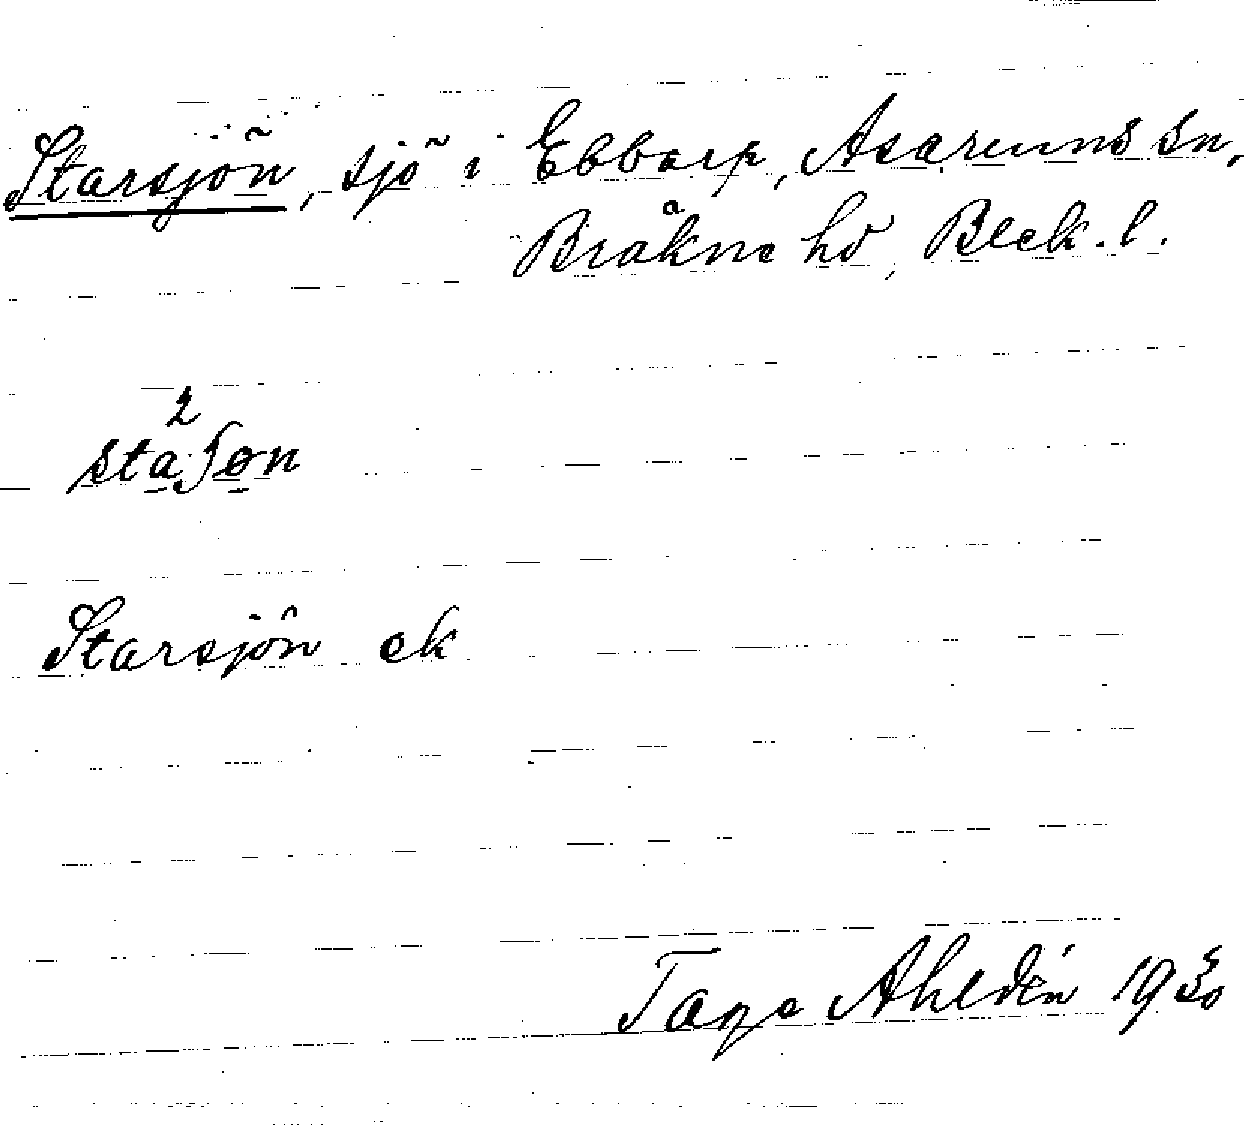 Starsjön, sjö i Ebbarp, Asarums sn,
Bräkne hd, Blek. l.
sta2ʃøn
Starsjön ek
Tage Ahldén 1930